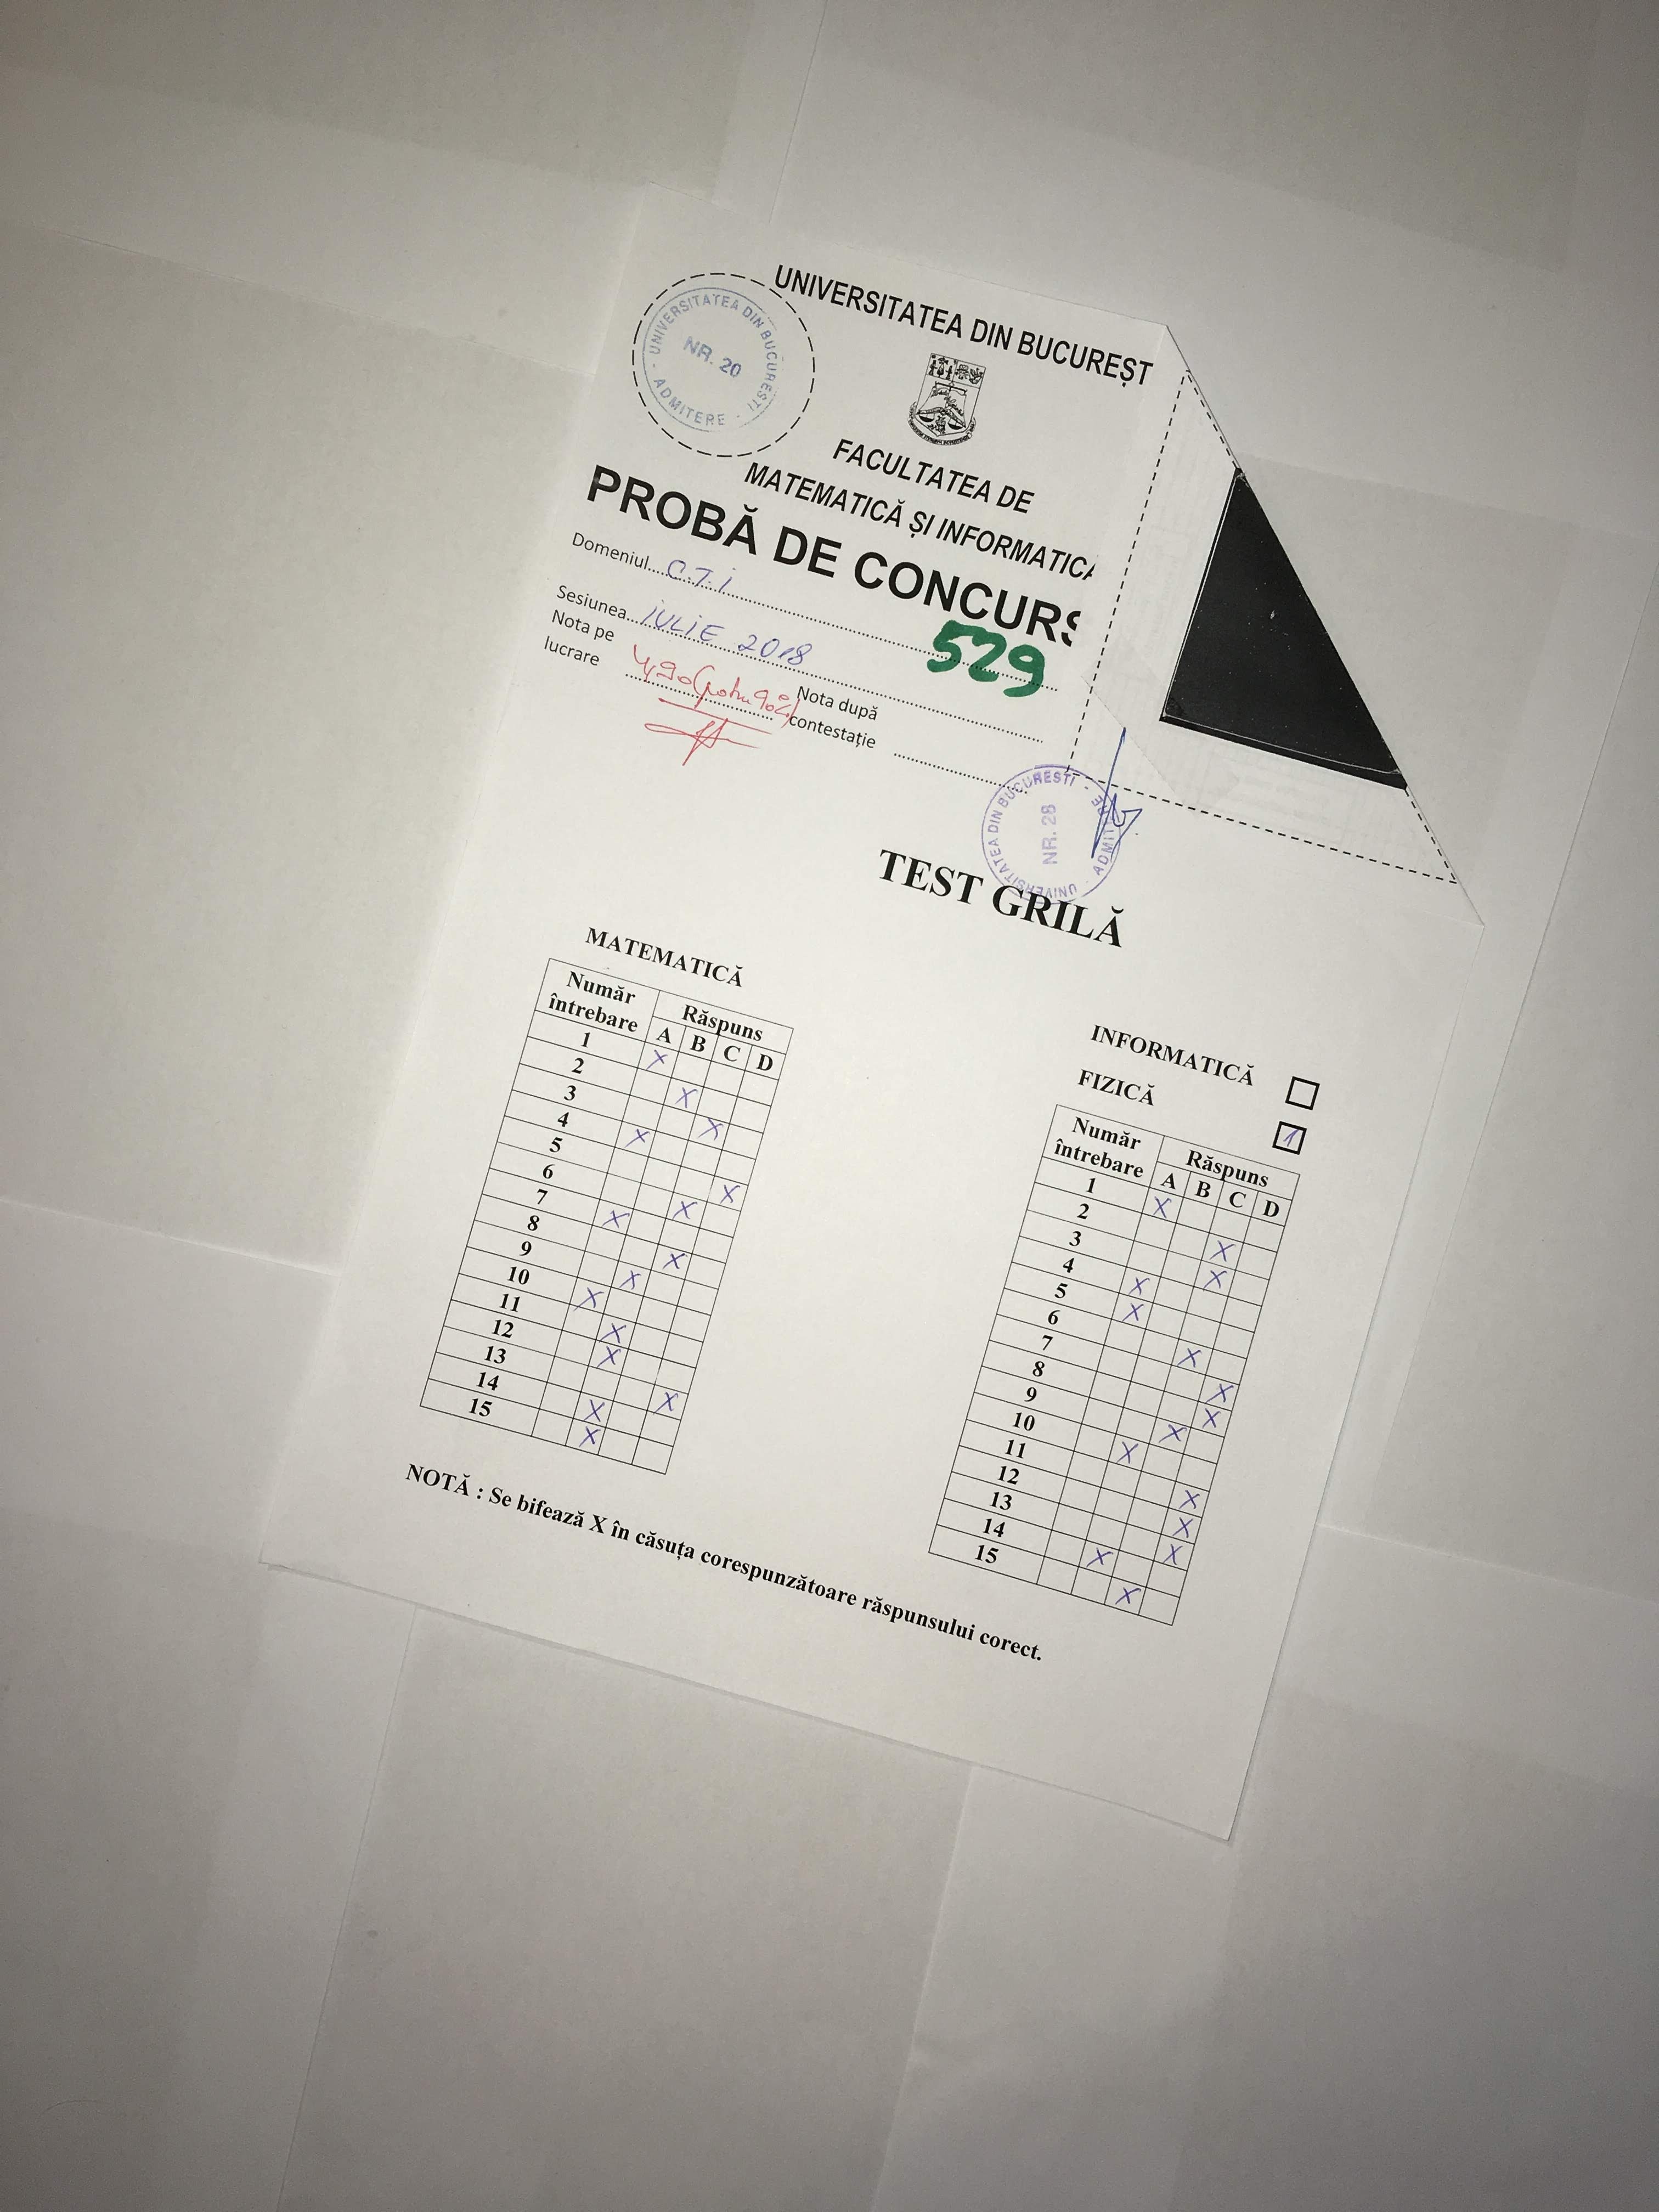 UNIVERSITATEA DIN BUCUREȘT
UNIVERSITATEA DIN BUCURESTI - ADMITERE -
NR. 20
FACULTATEA DE
MATEMATICĂ ȘI INFORMATICA
PROBĂ DE CONCURS
Domeniul C.T.I
Sesiunea IULIE 2018
529
Nota pe
lucrare 4,90
Nota după
contestație
UNIVERSITATEA DIN BUCURESTI - ADMITERE
NR. 28
TEST GRILĂ
MATEMATICĂ
Număr întrebare Răspuns
A B C D
1 X
2 X
3 X
4 X
5 X
6 X
7 X
8 X
9 X
10 X
11 X
12 X
13 X
14 X
15 X
INFORMATICĂ
FIZICĂ 1
Număr întrebare Răspuns
A B C D
1 X
2 X
3 X
4 X
5 X
6 X
7 X
8 X
9 X
10 X
11 X
12 X
13 X
14 X
15 X
NOTĂ : Se bifează X în căsuța corespunzătoare răspunsului corect.